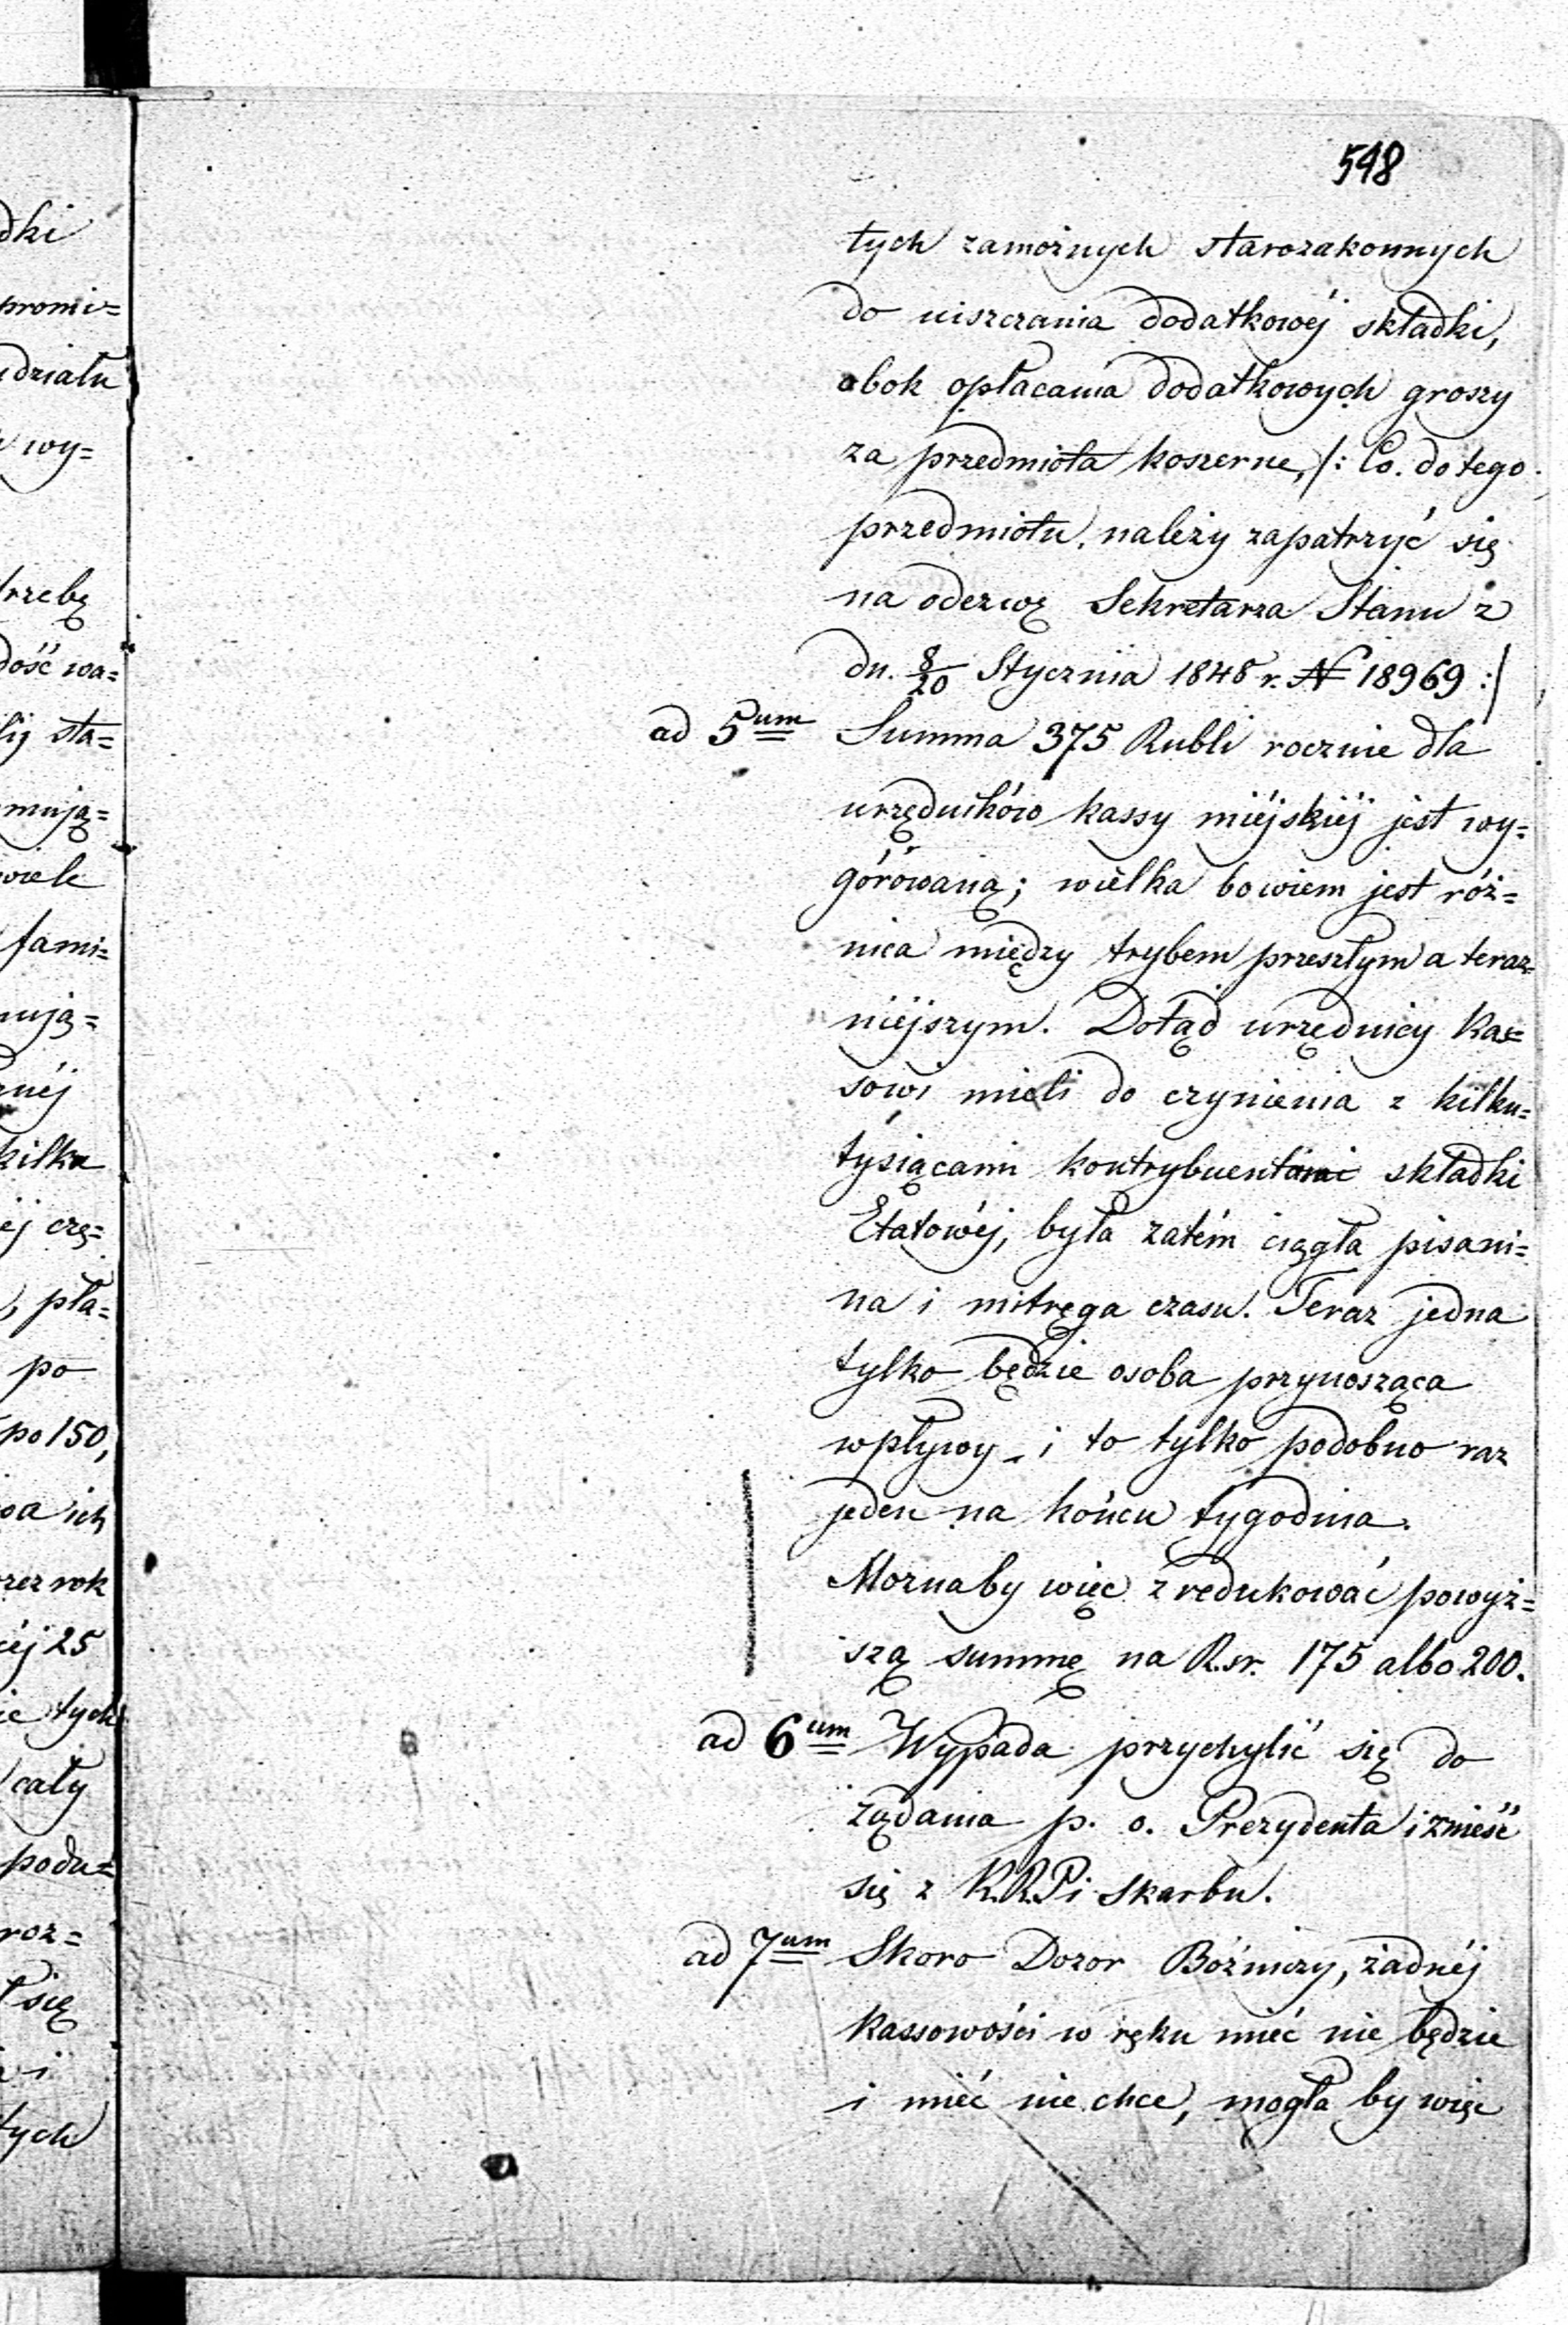 598
tych zamożnych starozakonnych
do uiszczania dodatkowéj składki,
obok opłacania dodatkowych groszy
za przedmiota koszerne, /: Co do tego
przedmiotu, należy zapatrzyć się
na odezwę Sekretarza Stanu z
dn. 8/20 Stycznia 1848 r. N 18969 :/
ad 5um Summa 375 Rubli rocznie dla
urzędników kassy miéjskiéj jest wy=
górówaną; wielka bowiem jest róż=
nica między trybem przeszłym a teraz=
niejszym. Dotąd urzędnicy kas=
sowi mieli do czynienia z kilku=
tysiącami kontrybuentami składki
Etatowéj, była zatém ciągła pisani=
na i mitręga czasu. Teraz jedna
tylko będzie osoba przynosząca
wpływy - i to tylko podobno raz
jeden na końcu tygodnia.
Moznaby więc zredukować powyż=
szą summę na R.sr. 175 albo 200.
ad 6um Wypada przychylić się do
żądania p. o. Prezydenta i znieść
się z K.R.P i Skarbu.
ad 7um Skoro Dozor Bóźniczy, żadnéj
kassowości w ręku mieć nie będzie
i mieć nie chce, mogła by więc
dki
promie=
udziału
wy=
trzebę
dość wa=
sta=
mują=
wiele
fami=
mują=
kilka
éj czę=
pła=
po
po 150,
ich
rok
éj 25
ie tych
cały
podu=
roz=
się
i
tych